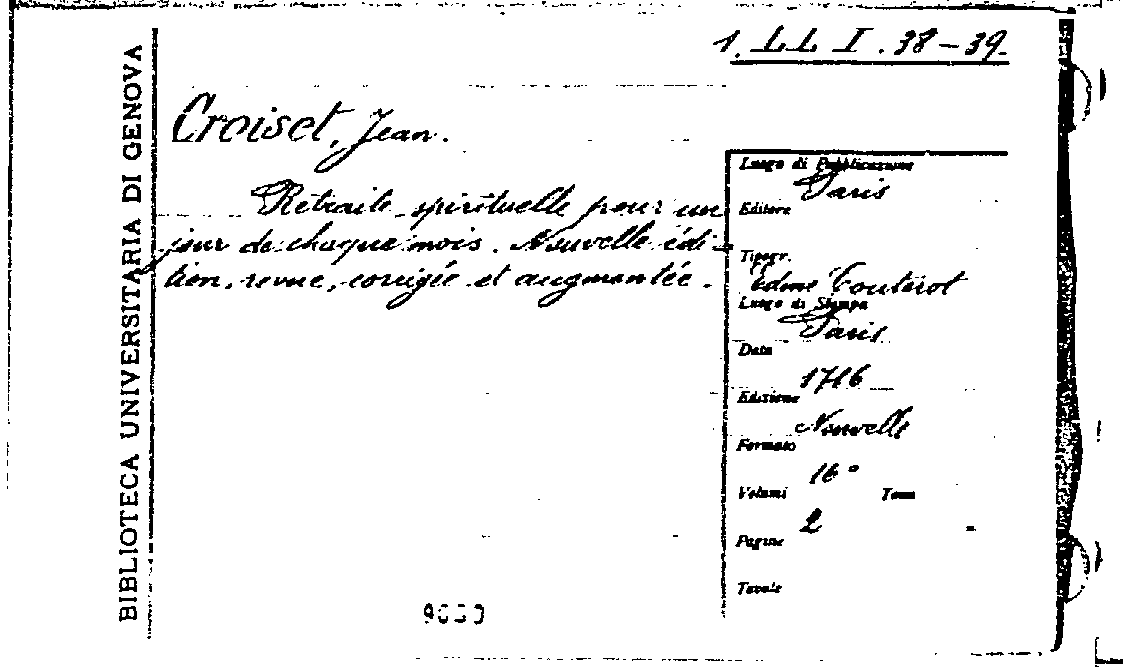 1. LL I. 38-39.
BIBLIOTECA UNIVERSITARIA DI GENOVA
Croiset, Jean.
Retraite spirituelle pour un
jour de chaque mois. Nouvelle édi-
tion, revue, corrigée et augmentée.
Luogo di Pubblicazione
Paris
Editore
Tipogr.
Edme Couterot
Luogo di Stampa
Paris
Data
1716
Edizione
Nouvelle
Formato
16°
Volumi Tomi
2
Pagine
Tavole